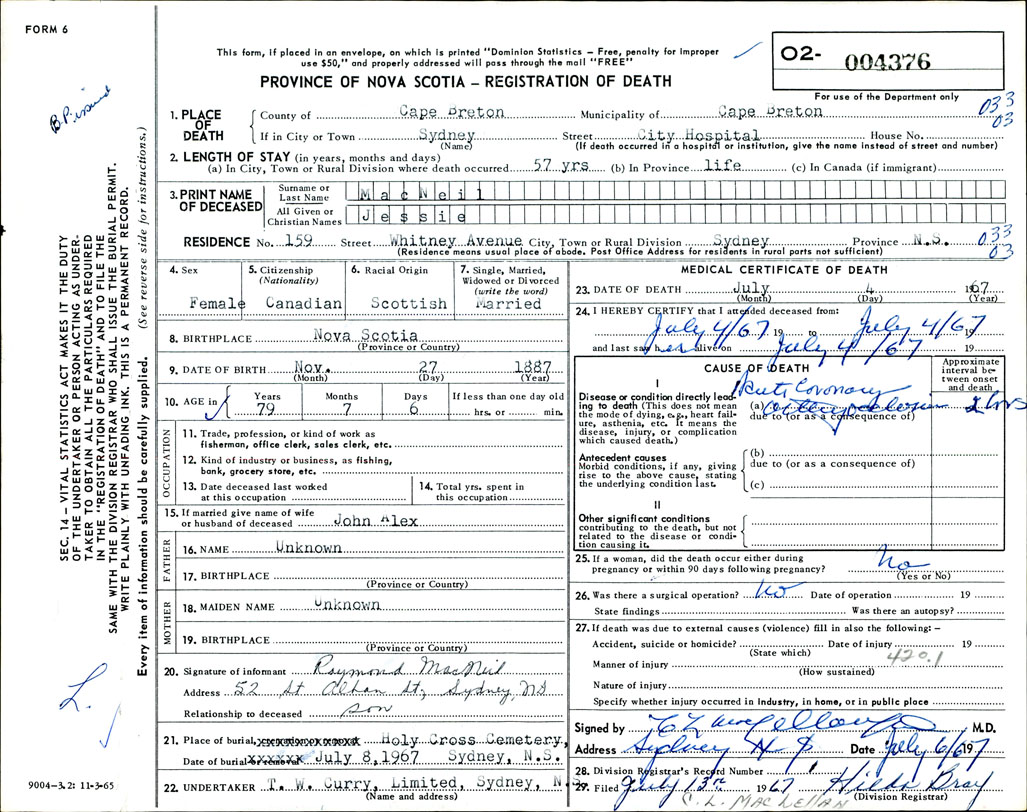 FORM 6
This form, if placed in an envelope, on which is printed "Dominion Statistics – Free, penalty for improper
use $50," and properly addressed will pass through the mail "FREE"
O2- 004376
PROVINCE OF NOVA SCOTIA – REGISTRATION OF DEATH
For use of the Department only
033
03
1. PLACE OF DEATH
County of Cape Breton Municipality of Cape Breton
If in City or Town Sydney Street City Hospital House No.
(Name) (If death occurred in a hospital or institution, give the name instead of street and number)
2. LENGTH OF STAY (in years, months and days)
(a) In City, Town or Rural Division where death occurred 57 yrs (b) In Province life (c) In Canada (if immigrant)
3. PRINT NAME OF DECEASED
Surname or Last Name MacNeil
All Given or Christian Names Jessie
RESIDENCE No. 159 Street Whitney Avenue City, Town or Rural Division Sydney Province N.S.
(Residence means usual place of abode. Post Office Address for residents in rural parts not sufficient)
033
03
4. Sex
Female
5. Citizenship (Nationality)
Canadian
6. Racial Origin
Scottish
7. Single, Married, Widowed or Divorced (write the word)
Married
8. BIRTHPLACE Nova Scotia
(Province or Country)
9. DATE OF BIRTH Nov. 27 1887
(Month) (Day) (Year)
10. AGE in
Years Months Days If less than one day old
79 7 6 hrs. or min.
OCCUPATION
11. Trade, profession, or kind of work as
fisherman, office clerk, sales clerk, etc.
12. Kind of industry or business, as fishing,
bank, grocery store, etc.
13. Date deceased last worked
at this occupation
14. Total yrs. spent in
this occupation
15. If married give name of wife
or husband of deceased John Alex
FATHER
16. NAME Unknown
17. BIRTHPLACE
(Province or Country)
MOTHER
18. MAIDEN NAME Unknown
19. BIRTHPLACE
(Province or Country)
20. Signature of informant Raymond MacNeil
Address 52 St Alban St, Sydney, NS
Relationship to deceased son
21. Place of burial, Holy Cross Cemetery,
Date of burial July 8, 1967 Sydney, N.S.
22. UNDERTAKER T. W. Curry, Limited, Sydney, N.S.
(Name and address)
MEDICAL CERTIFICATE OF DEATH
23. DATE OF DEATH July 4 1967
(Month) (Day) (Year)
24. I HEREBY CERTIFY that I attended deceased from:
July 4/67 19 to July 4/67 19
and last saw her alive on July 4/67 19
CAUSE OF DEATH
Approximate interval between onset and death
I
Disease or condition directly leading to death (This does not mean
the mode of dying, e.g., heart failure, asthenia, etc. It means the
disease, injury, or complication
which caused death.)
(a) Acute Coronary
due to (or as a consequence of)
2 hrs
Antecedent causes
Morbid conditions, if any, giving
rise to the above cause, stating
the underlying condition last.
(b)
due to (or as a consequence of)
(c)
II
Other significant conditions
contributing to the death, but not
related to the disease or condition causing it.
25. If a woman, did the death occur either during
pregnancy or within 90 days following pregnancy? No
(Yes or No)
26. Was there a surgical operation? No Date of operation 19
State findings Was there an autopsy?
27. If death was due to external causes (violence) fill in also the following: –
Accident, suicide or homicide? Date of injury 19
(State which)
420.1
Manner of injury
(How sustained)
Nature of injury
Specify whether injury occurred in industry, in home, or in public place
Signed by M.D.
Address Sydney N S Date July 6/67 19
28. Division Registrar's Record Number
29. Filed July 13th 1967 Hilda Gray
(Division Registrar)
C. L. MACLELLAN
SEC. 14 – VITAL STATISTICS ACT MAKES IT THE DUTY
OF THE UNDERTAKER OR PERSON ACTING AS UNDERTAKER TO OBTAIN ALL THE PARTICULARS REQUIRED
IN THE "REGISTRATION OF DEATH" AND TO FILE THE
SAME WITH THE DIVISION REGISTRAR WHO SHALL ISSUE THE BURIAL PERMIT.
WRITE PLAINLY WITH UNFADING INK. THIS IS A PERMANENT RECORD.
Every item of information should be carefully supplied. (See reverse side for instructions.)
L.
9004–3.2: 11-3-65